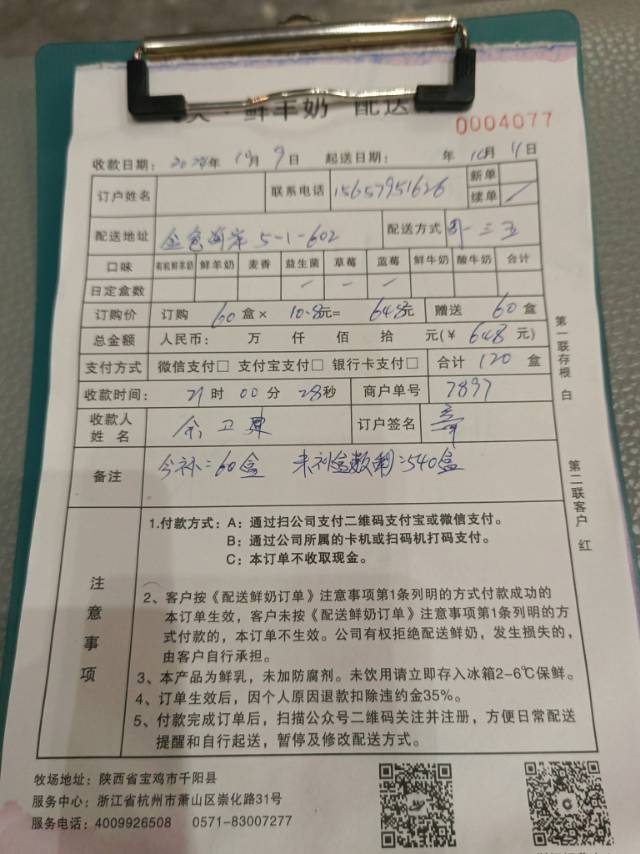 鲜羊奶 配送
0004077
收款日期：2024年 10月 9日 起送日期： 年 10月 11日
订户姓名 联系电话 15657951626 新单
续单 /
配送地址 金色海岸 5-1-602 配送方式 周一三五
口味 有机鲜羊奶 鲜羊奶 麦香 益生菌 草莓 蓝莓 鲜牛奶 酸牛奶 合计
日定盒数
订购价 订购 60 盒× 10.8元= 648元 赠送 60 盒
总金额 人民币： 万 仟 佰 拾 元(￥ 648 元)
支付方式 微信支付□ 支付宝支付□ 银行卡支付□ 合计 120 盒
收款时间： 21时 00分 28秒 商户单号 7897
收款人姓名 余卫东 订户签名 章
备注 今补：60盒 未补盒数剩：540盒
第一联存根 白
第二联客户 红
注意事项
1.付款方式：A：通过扫公司支付二维码支付宝或微信支付。
B：通过公司所属的卡机或扫码机打码支付。
C：本订单不收取现金。
2、客户按《配送鲜奶订单》注意事项第1条列明的方式付款成功的
本订单生效，客户未按《配送鲜奶订单》注意事项第1条列明的方
式付款的，本订单不生效。公司有权拒绝配送鲜奶，发生损失的，
由客户自行承担。
3、本产品为鲜乳，未加防腐剂。未饮用请立即存入冰箱2-6℃保鲜。
4、订单生效后，因个人原因退款扣除违约金35%。
5、付款完成订单后，扫描公众号二维码关注并注册，方便日常配送
提醒和自行起送，暂停及修改配送方式。
牧场地址：陕西省宝鸡市千阳县
服务中心：浙江省杭州市萧山区崇化路31号
服务电话：4009926508 0571-83007277